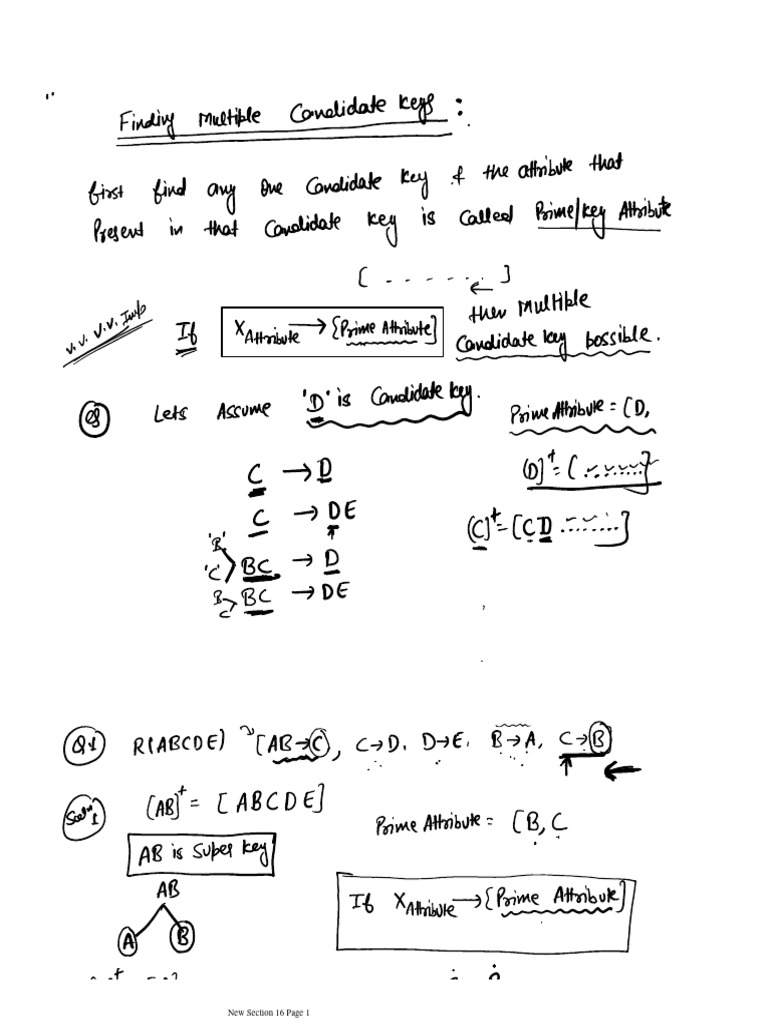 Finding Multiple Candidate keys :
first find any one candidate key & the attribute that
Present in that Candidate key is called Prime/key Attribute
[ . - - - - . . ]
V. V. V. V. Imp
If X Attribute → {Prime Attribute} then Multiple
Candidate key possible.
Lets Assume 'D' is Candidate key. Prime Attribute = {D,
C → D
(D)+ = { ......... }
C → DE
(C)+ = {CD .........}
'B'
'C' > BC → D
B
C > BC → DE
Q.1 R(ABCDE) {AB→C, C→D, D→E, B→A, C→B
Soln 1 (AB)+ = [ABCDE]
Prime Attribute = {B, C
AB is Super key
AB
A B
If X Attribute → {Prime Attribute}
New Section 16 Page 1